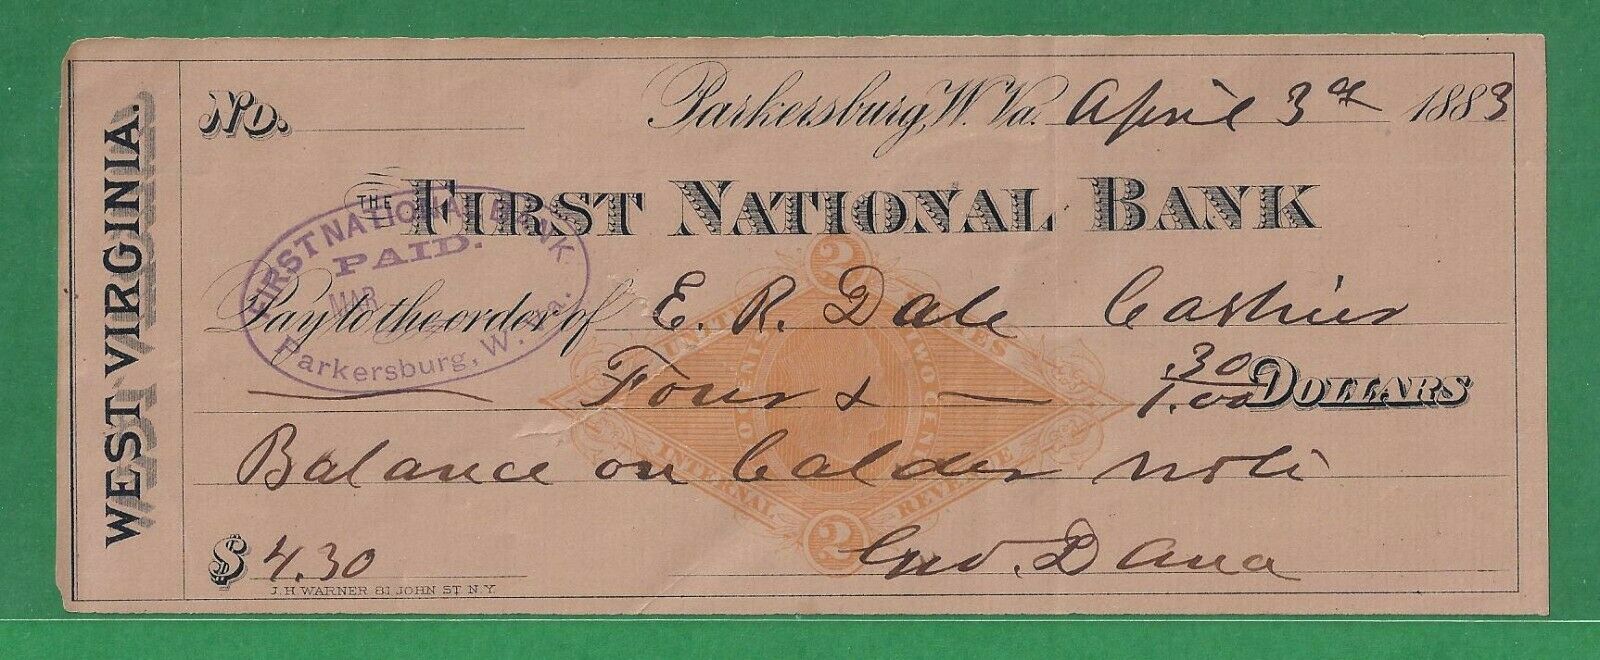 WEST VIRGINIA.
No.
Parkersburg, W. Va. April 3rd 1883
THE FIRST NATIONAL BANK
FIRST NATIONAL BANK
PAID.
MAR
Parkersburg, W. Va.
Pay to the order of E. R. Dale Cashier
Four & — .30/1.00 DOLLARS
Balance on Calder note
$ 4.30
Geo. Dana
J. H. WARNER 81 JOHN ST. N.Y.
2
UNITED STATES
TWO CENTS
TWO CENTS
INTERNAL REVENUE
2